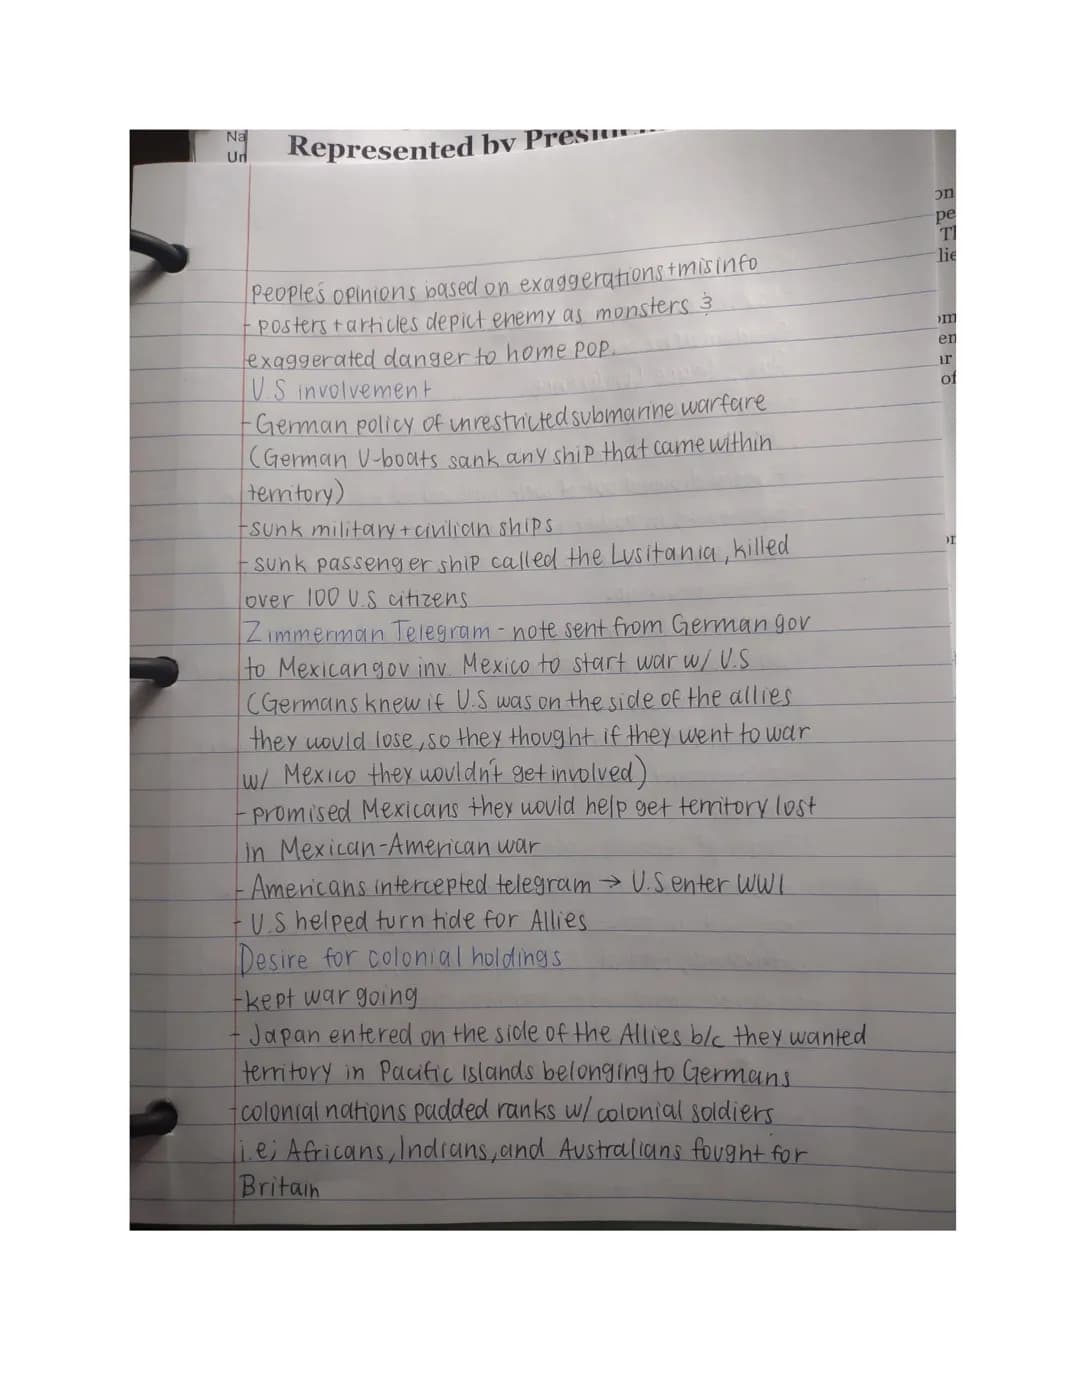 Na
Un
Represented by
on
pe
lie
om
en
ar
of
or
people's opinions based on exaggerations + misinfo
- posters + articles depict enemy as monsters &
exaggerated danger to home pop.
U.S involvement
- German policy of unrestricted submarine warfare
(German U-boats sank any ship that came within
territory)
- sunk military + civilian ships
- sunk passenger ship called the Lusitania, killed
over 100 U.S citizens
Zimmerman Telegram - note sent from German gov
to Mexican gov inv. Mexico to start war w/ U.S
(Germans knew if U.S was on the side of the allies
they would lose, so they thought if they went to war
w/ Mexico they wouldn't get involved)
- promised Mexicans they would help get territory lost
in Mexican-American war
- Americans intercepted telegram → U.S enter WW1
- U.S helped turn tide for Allies
Desire for colonial holdings
- kept war going
- Japan entered on the side of the Allies b/c they wanted
territory in Pacific Islands belonging to Germans
- colonial nations padded ranks w/ colonial soldiers
i.e; Africans, Indians, and Australians fought for
Britain